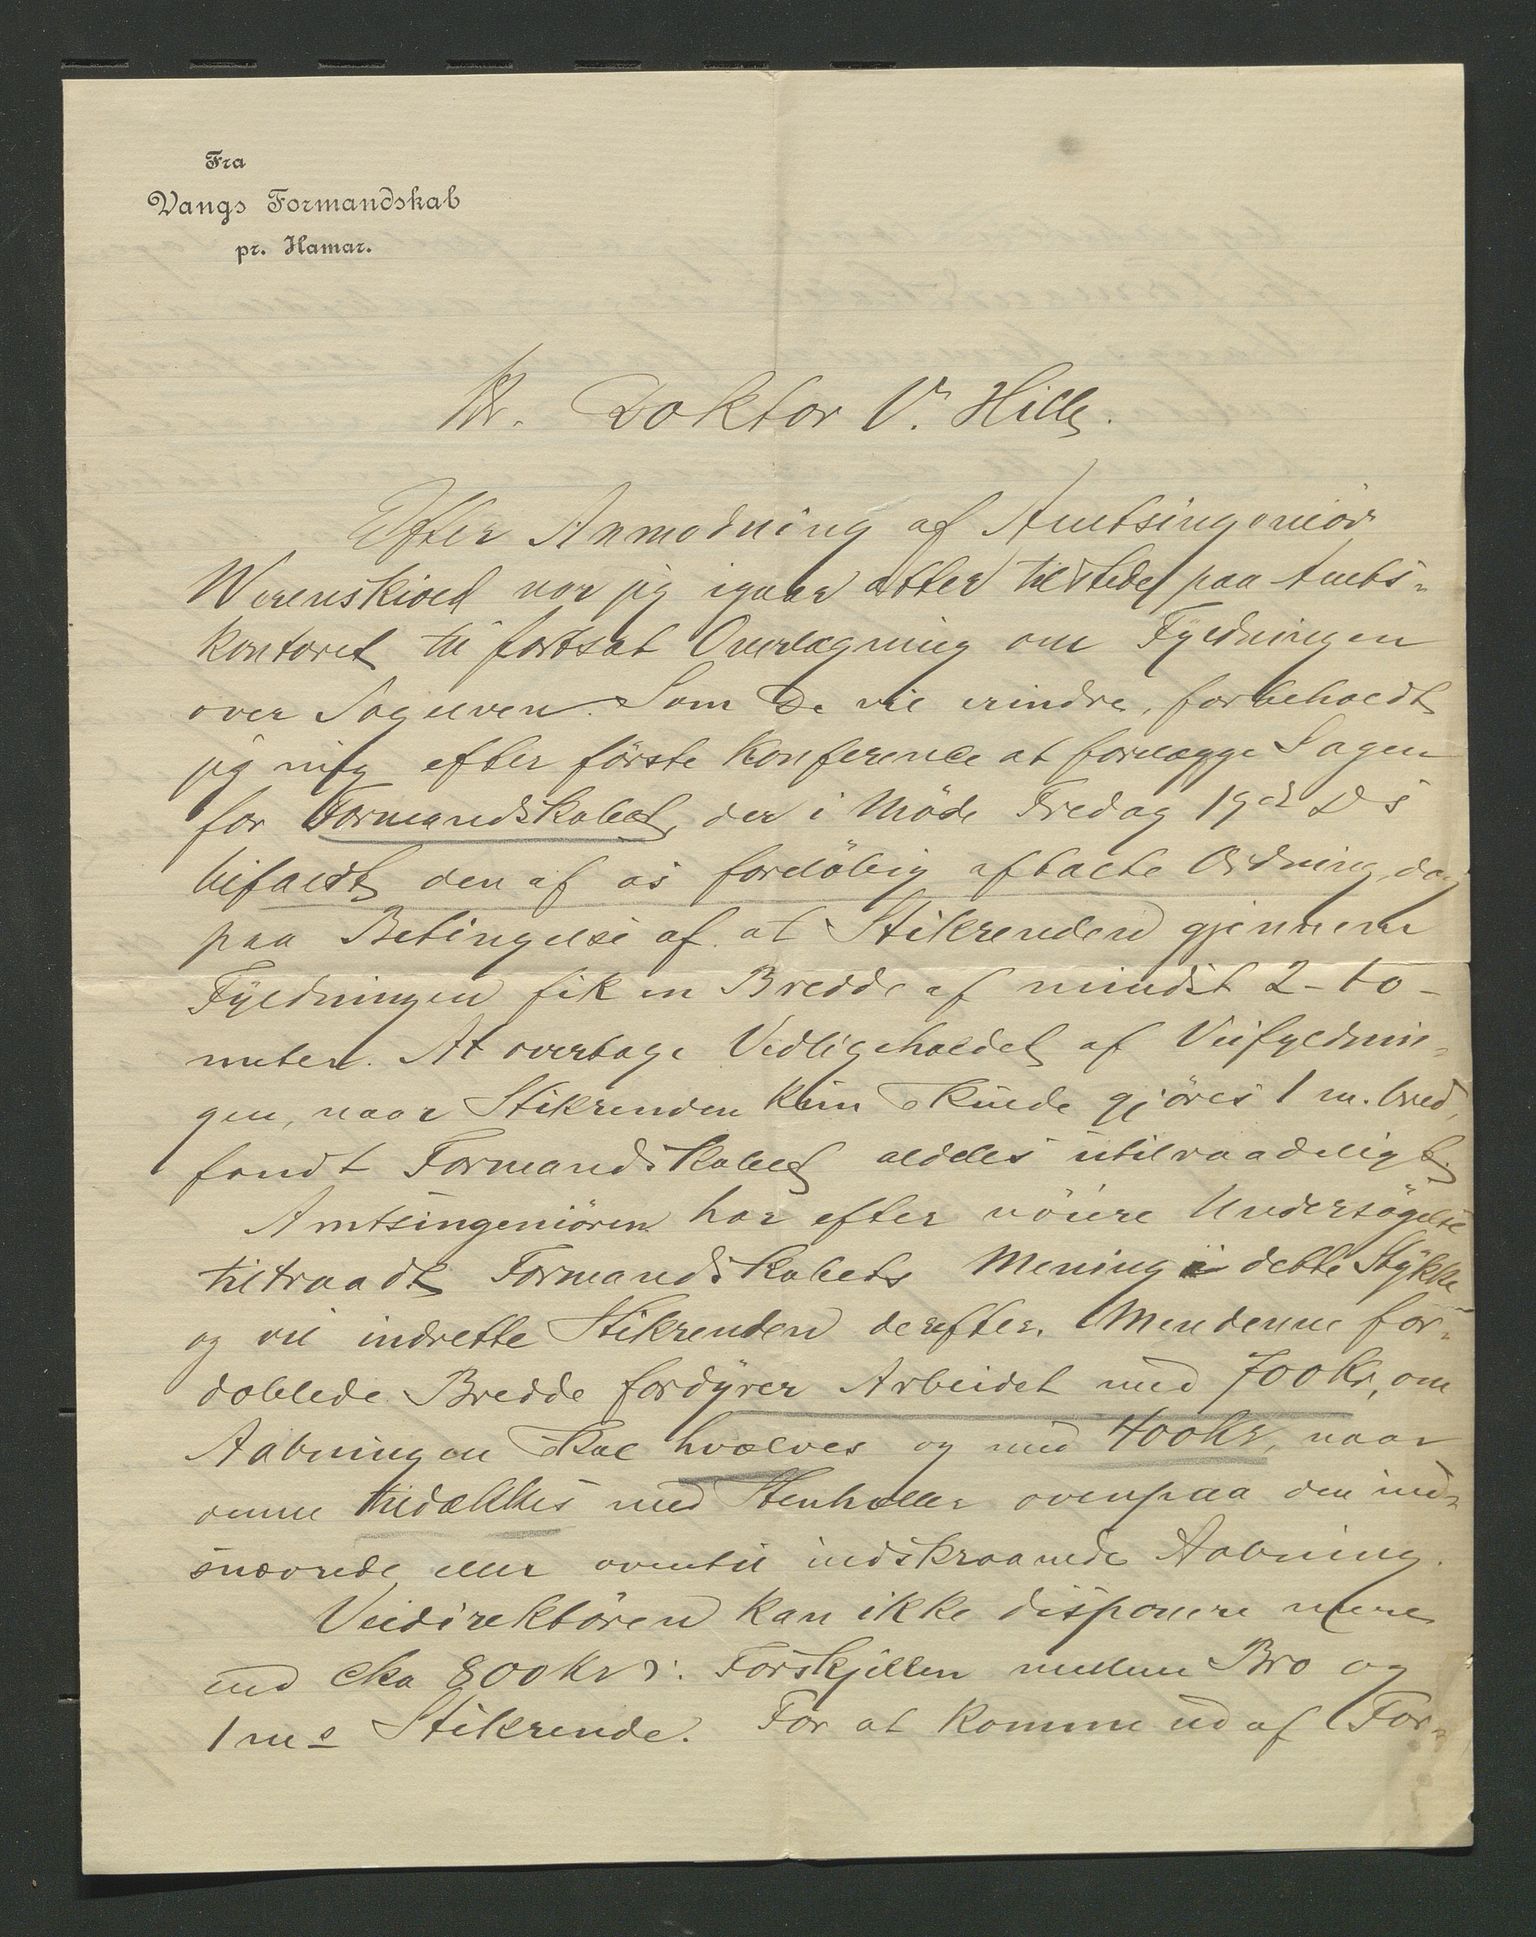 Fra
Vangs Formandskab
pr. Hamar.
Hr. Doktor V. Hille.
Efter Anmodning af Amtsingeniör
Werenskiold var jeg igaar atter tilstede paa Amts-
kontoret til fortsat Overlægning om Fyldningen
over Sagelven. Som De vil erindre, forbeholdt
jeg mig efter förste Konference at forelægge Sagen
for Formandskabet, der i Möde Fredag 19de Ds
bifaldt den af os foreløbig aftalte Ordning, dog
paa Betingelse af at Stikrenden gjennem
Fyldningen fik en Bredde af mindst 2 - to -
meter. At overtage Vedligeholdet af Veifyldnin-
gen, naar Stikrenden kun skulde gjöres 1 m. bred,
fandt Formandskabet aldeles utilraadeligt.
Amtsingeniören har efter nöiere Undersögelse
tiltraadt Formandskabets Mening i dette Stykke
og vil indrette Stikrenden derefter. Men denne for-
doblede Bredde fordyrer Arbeidet med 700 Kr, om
Aabningen skal hvælves og med 400 Kr, naar
denne tildækkes med Stenheller ovenpaa den ind-
snævrede eller oventil indskraanede Aabning.
Veidirektören kan ikke disponere mere
end cka 800 Kr ɔ: Forskjellen mellem Bro og
1 m.s Stikrende. For at komme ud af For-